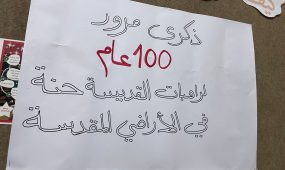 ذكرى مرور
100 عام
لراهبات القديسة حنة
في الأراضي المقدسة